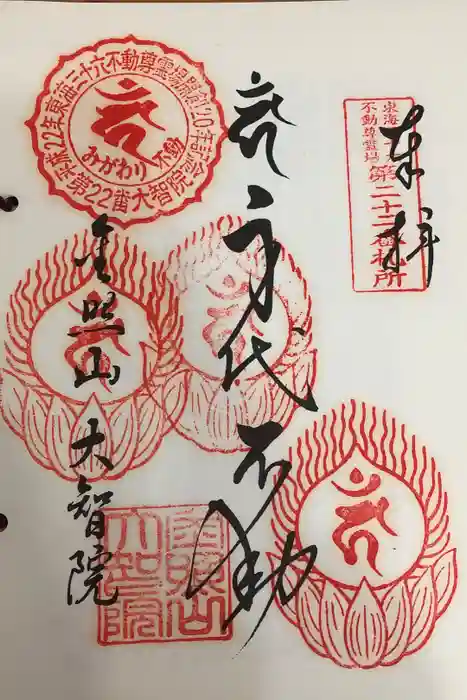 奉拝
東海三十六
不動尊霊場
第二十二番札所
身代不動
金照山
大智院
平成22年東海三十六不動尊霊場開創20年記念
みがわり不動
第22番大智院
金照山
大智院